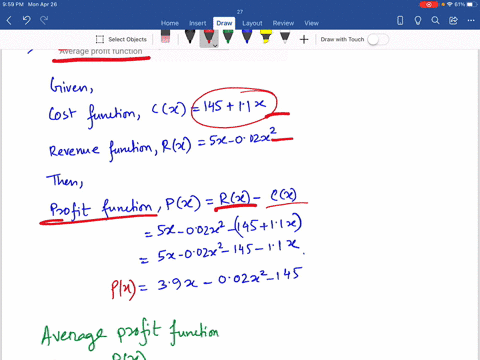 9:59 PM Mon Apr 26
61%
27
Home Insert Draw Layout Review View
Select Objects
Draw with Touch
Average profit function
Given,
Cost function, C(x) = 145 + 1.1x
Revenue function, R(x) = 5x - 0.02x²
Then,
Profit function, P(x) = R(x) - C(x)
= 5x - 0.02x² - (145 + 1.1x)
= 5x - 0.02x² - 145 - 1.1x.
P(x) = 3.9x - 0.02x² - 145
Average profit function
P(x)